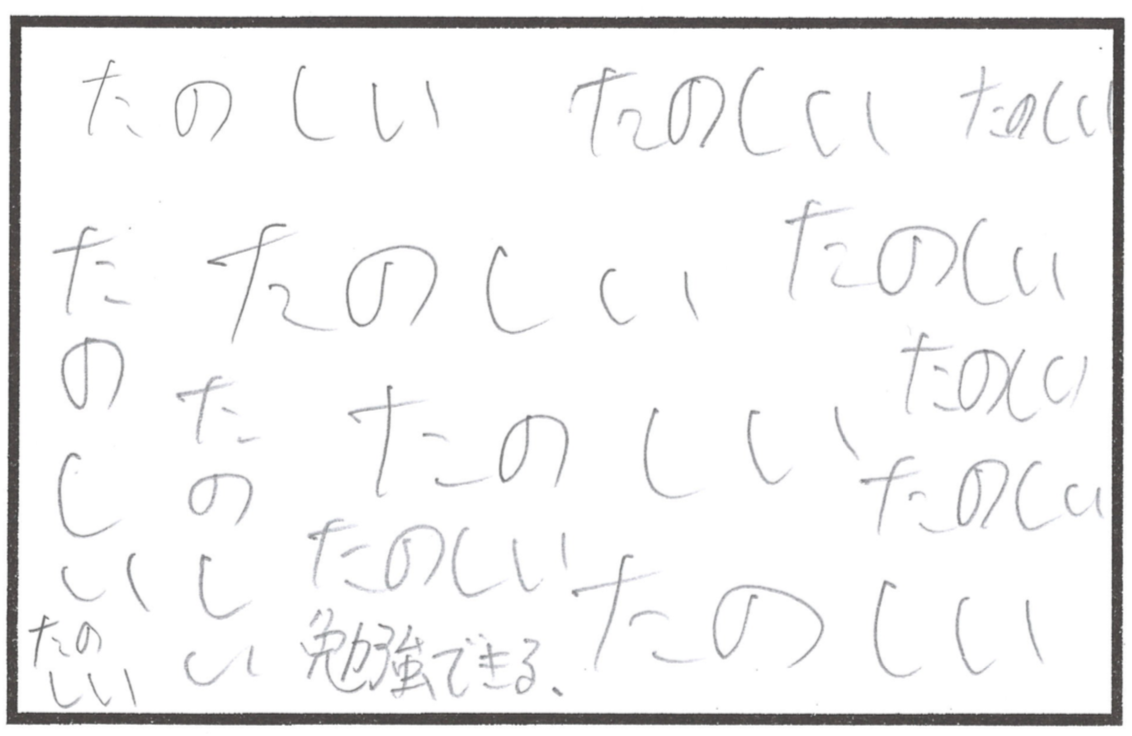 たのしい たのしい たのしい
たのしい
たのしい
たのしい
たのしい
たのしい
たのしい
たのしい
たのしい
たのしい
たの
しい
勉強できる、
たのしい